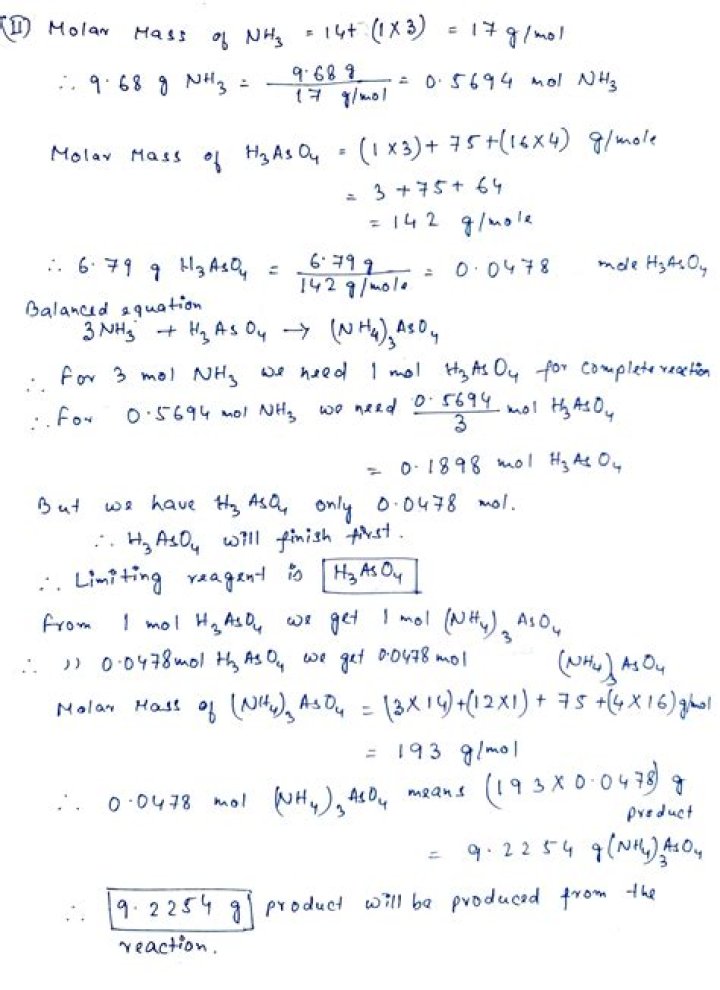 (II) Molar Mass of NH₃ = 14+ (1×3) = 17 g/mol
∴ 9.68 g NH₃ = 9.68 g / 17 g/mol = 0.5694 mol NH₃
Molar Mass of H₃AsO₄ = (1×3)+ 75+(16×4) g/mole
= 3+75+ 64
= 142 g/mole
∴ 6.79 g H₃AsO₄ = 6.79 g / 142 g/mole = 0.0478 mole H₃AsO₄
Balanced equation
3NH₃ + H₃AsO₄ → (NH₄)₃AsO₄
∴ For 3 mol NH₃ we need 1 mol H₃AsO₄ for complete reaction
∴ For 0.5694 mol NH₃ we need 0.5694 / 3 mol H₃AsO₄
= 0.1898 mol H₃AsO₄
But we have H₃AsO₄ only 0.0478 mol.
∴ H₃AsO₄ will finish first.
∴ Limiting reagent is H₃AsO₄
From 1 mol H₃AsO₄ we get 1 mol (NH₄)₃AsO₄
∴ )) 0.0478mol H₃AsO₄ we get 0.0478 mol (NH₄)₃AsO₄
Molar Mass of (NH₄)₃AsO₄ = (3×14)+(12×1) + 75 +(4×16) g/mol
= 193 g/mol
∴ 0.0478 mol (NH₄)₃AsO₄ means (193×0.0478) g
product
= 9.2254 g (NH₄)₃AsO₄
∴ 9.2254 g product will be produced from the
reaction.